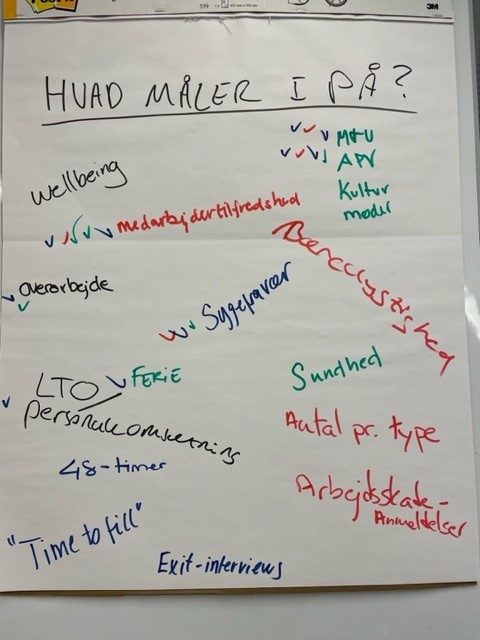 3M
HVAD MÅLER I PÅ?
MTU
APV
Kultur
møder
Wellbeing
medarbejdertilfredshed
Bæredygtighed
overarbejde
Sygefravær
FERIE
Sundhed
LTO/
personaleomsætning
Antal pr. type
48-timer
Arbejdsskade-
Anmeldelser
"Time to fill"
Exit-interviews